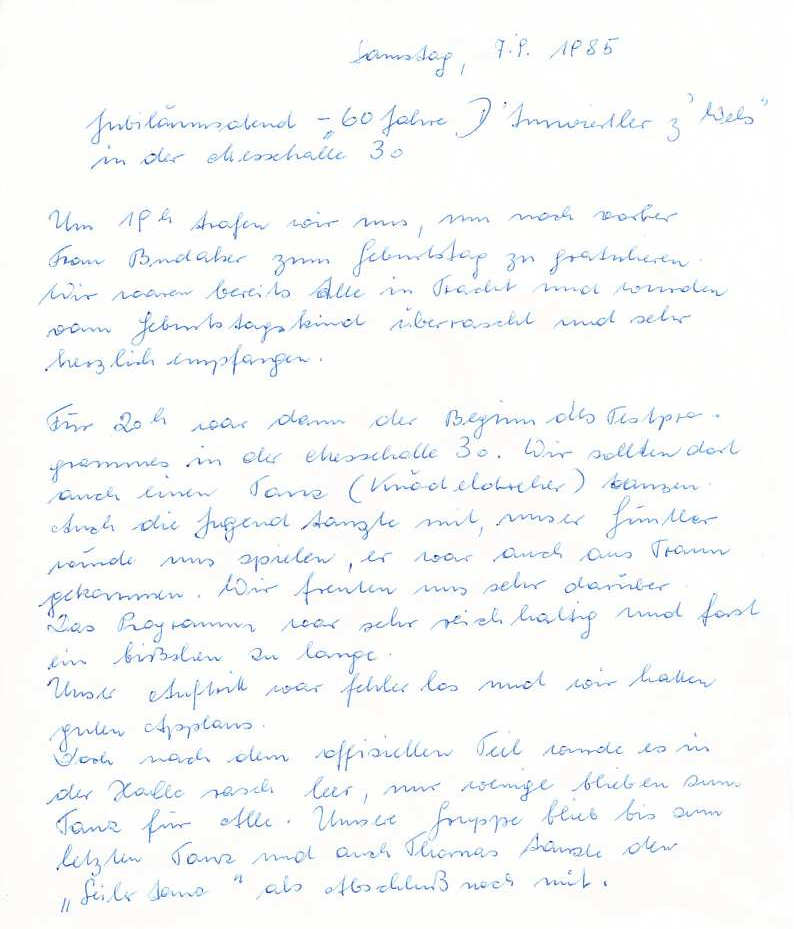 Samstag, 7.9. 1985
Jubiläumsabend - "60 Jahre D' Innviertler z' Wels"
in der Messehalle 30
Um 19h trafen wir uns, um noch vorher
Frau zum Geburtstag zu gratulieren.
Wir waren bereits Alle in Tracht und wurden
vom Geburtstagskind überrascht und sehr
herzlich empfangen.
Für 20h war dann der Beginn des Festpro-
grammes in der Messehalle 30. Wir sollten dort
auch einen Tanz (Knödeldreher) tanzen.
Auch die Jugend tanzte mit, unser Günther
würde uns spielen, er war auch aus Traun
gekommen. Wir freuten uns sehr darüber.
Das Programm war sehr reichhaltig und fast
ein bißchen zu lange.
Unser Auftritt war fehlerlos und wir hatten
guten Applaus.
Doch nach dem offiziellen Teil wurde es in
der Halle rasch leer, nur wenige blieben zum
Tanz für Alle. Unsere Gruppe blieb bis zum
letzten Tanz und auch Thomas tanzte den
"Seilertanz" als Abschluß noch mit.